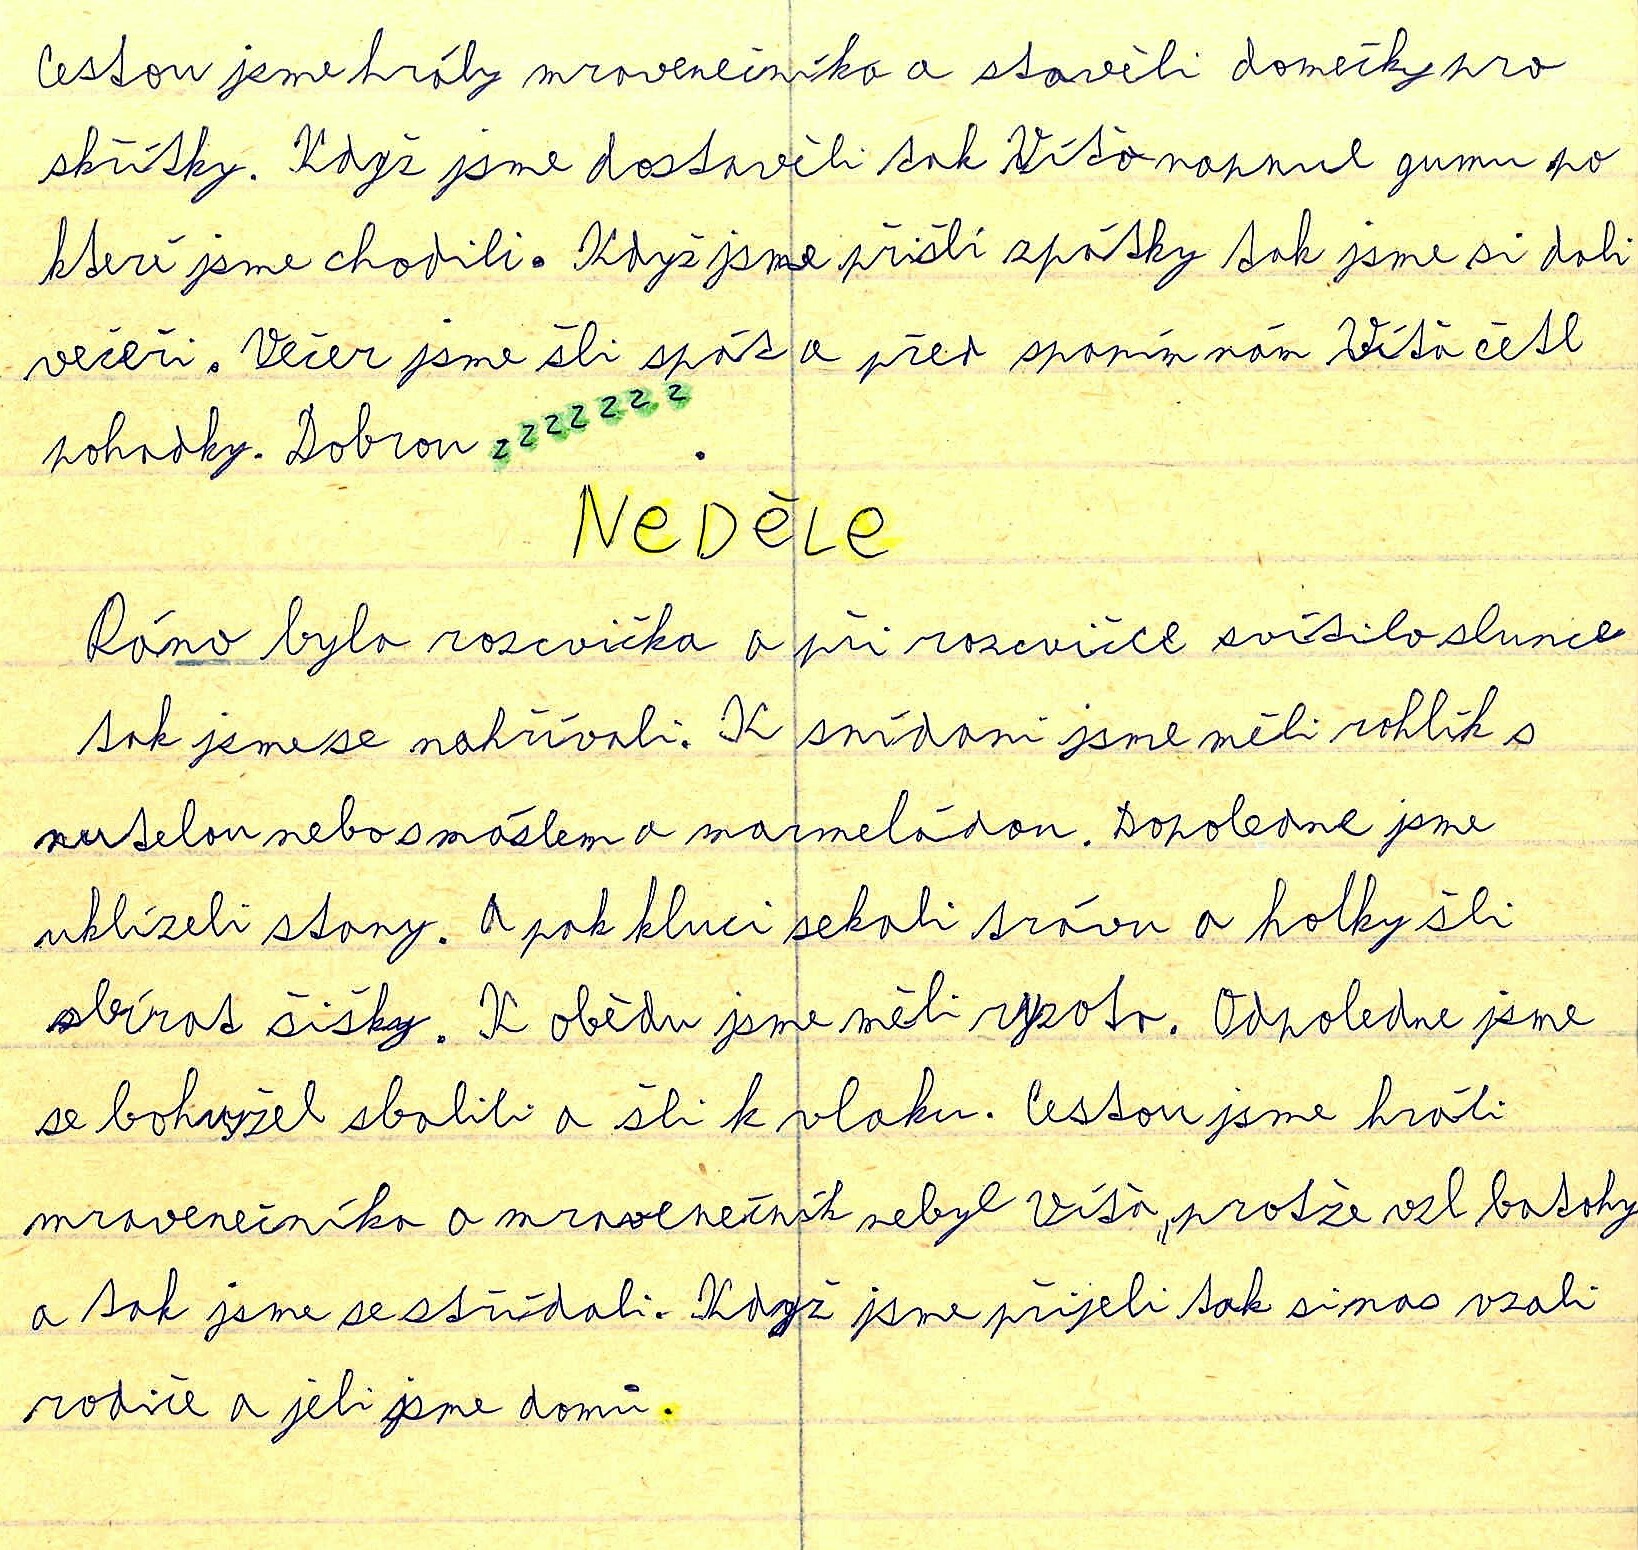 Cestou jsme hrály mravenečníka a stavěli domečky pro
skřítky. Když jsme dostavěli tak Víťa napnul gumu po
které jsme chodili. Když jsme přišli zpátky tak jsme si dali
večeři. Večer jsme šli spát a před spaním nám Víťa četl
pohadky. Dobrou zzzzzzz .
NeDěLe
Ráno byla rozcvička a při rozcvičce svítilo slunce
tak jsme se nahřívali. K snídani jsme měli rohlík s
nutelou nebo s máslem a marmeládou. Dopoledne jsme
uklízeli stany. A pak kluci sekali trávu a holky šli
sbírat šišky. K obědu jsme měli ryzoto. Odpoledne jsme
se bohužel sbalili a šli k vlaku. Cestou jsme hráli
mravenečníka a mravenečník nebyl Víťa, protže vzl batohy
a tak jsme se střídali. Když jsme přijeli tak si nas vzali
rodiče a jeli jsme domů.